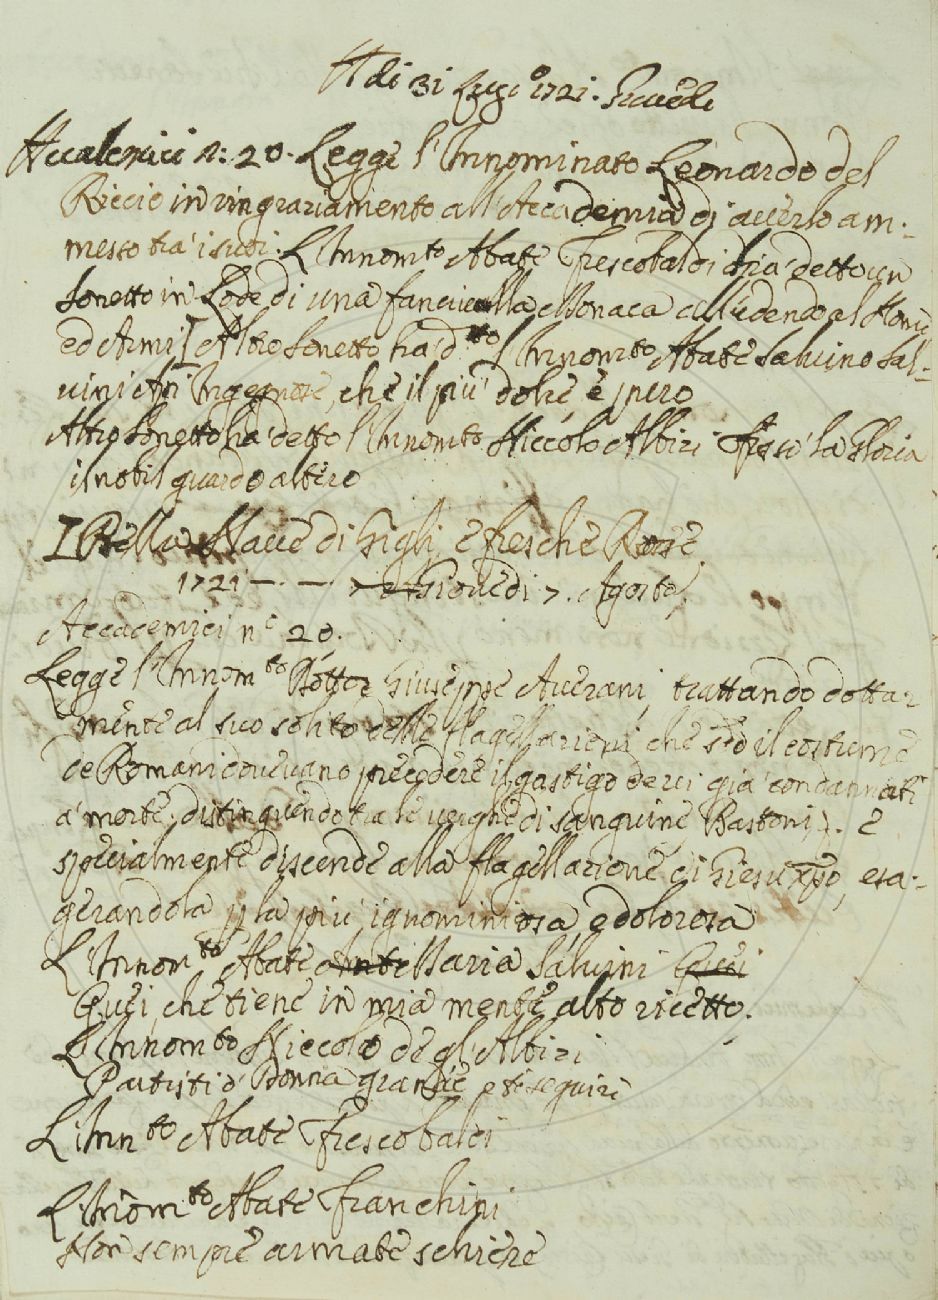 A di 31 Lug.o 1721. Giovedì
Accademici n: 20. Legge l'Innominato Leonardo del
Riccio in ringraziamento all'Accademia di averlo am-
messo tra i suoi. L'Innom.to Abate Frescobaldi ha detto un
sonetto in Lode di una fanciulla Monaca alludendo al Nome
ed Armi Altro sonetto ha d.tto l'Innom.to Abate Salvino Sal-
vini che il più dolce è
Altro sonetto ha detto l'Innom.to Niccolò Albizi la Gloria
il nobil guardo altero
Bella Nave di Gigli, e fresche Rose
1721 — . — . — Giovedì 7. Agosto
Accademici n.o 20.
Legge l'Innom.to Dottor Giuseppe Averani, trattando dotta-
mente al suo solito delle flagellazioni, che s.do il costume
de Romani dovevano precedere il gastigo de rei già condannati
a morte, distinguendo tra le verghe di sanguine Bastoni, . e
specialmente discende alla flagellazione di Giesù Xpo, esa-
gerandola p la più ignominiosa, e dolorosa
L'Innom.to Abate Ant Maria Salvini Quei
Quei, che tiene in mia mente alto ricetto.
L'Innom.to Niccolò degl'Albizi
Partisti ò Donna grande, e ti seguiro
L'Inn.to Abate Frescobaldi
L'Inom.to Abate Franchini
Non sempre armate schiere